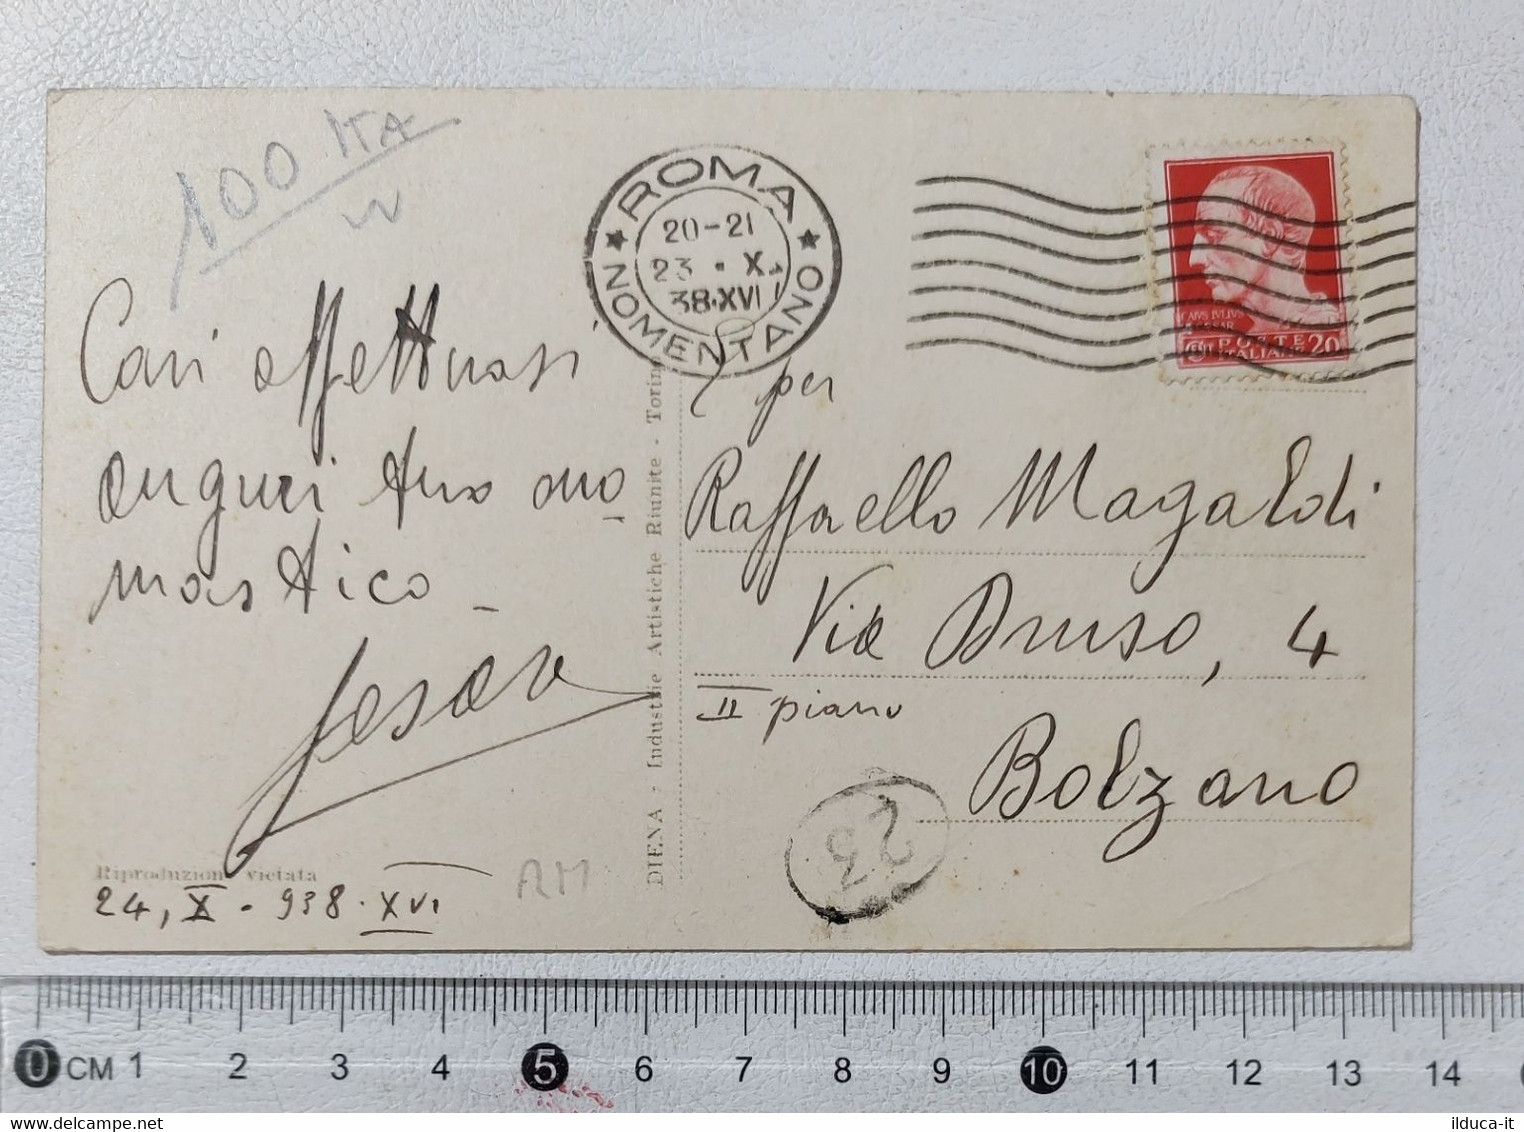 100 ITA
W
ROMA
20-21
23 · X.
38·XVI
NOMENTANO
CAIVS IVLIVS
CAESAR
POSTE
ITALIANE 20
Cari affettuosi
auguri tuo ono_
mastico_
24, X - 938 · XVI
Riproduzione vietata
RM
DIENA - Industrie Artistiche Riunite - Torino
per
Raffaello Magaldi
Via Druso, 4
II piano
Bolzano
23
0 CM 1 2 3 4 5 6 7 8 9 10 11 12 13 14
ilduca-it